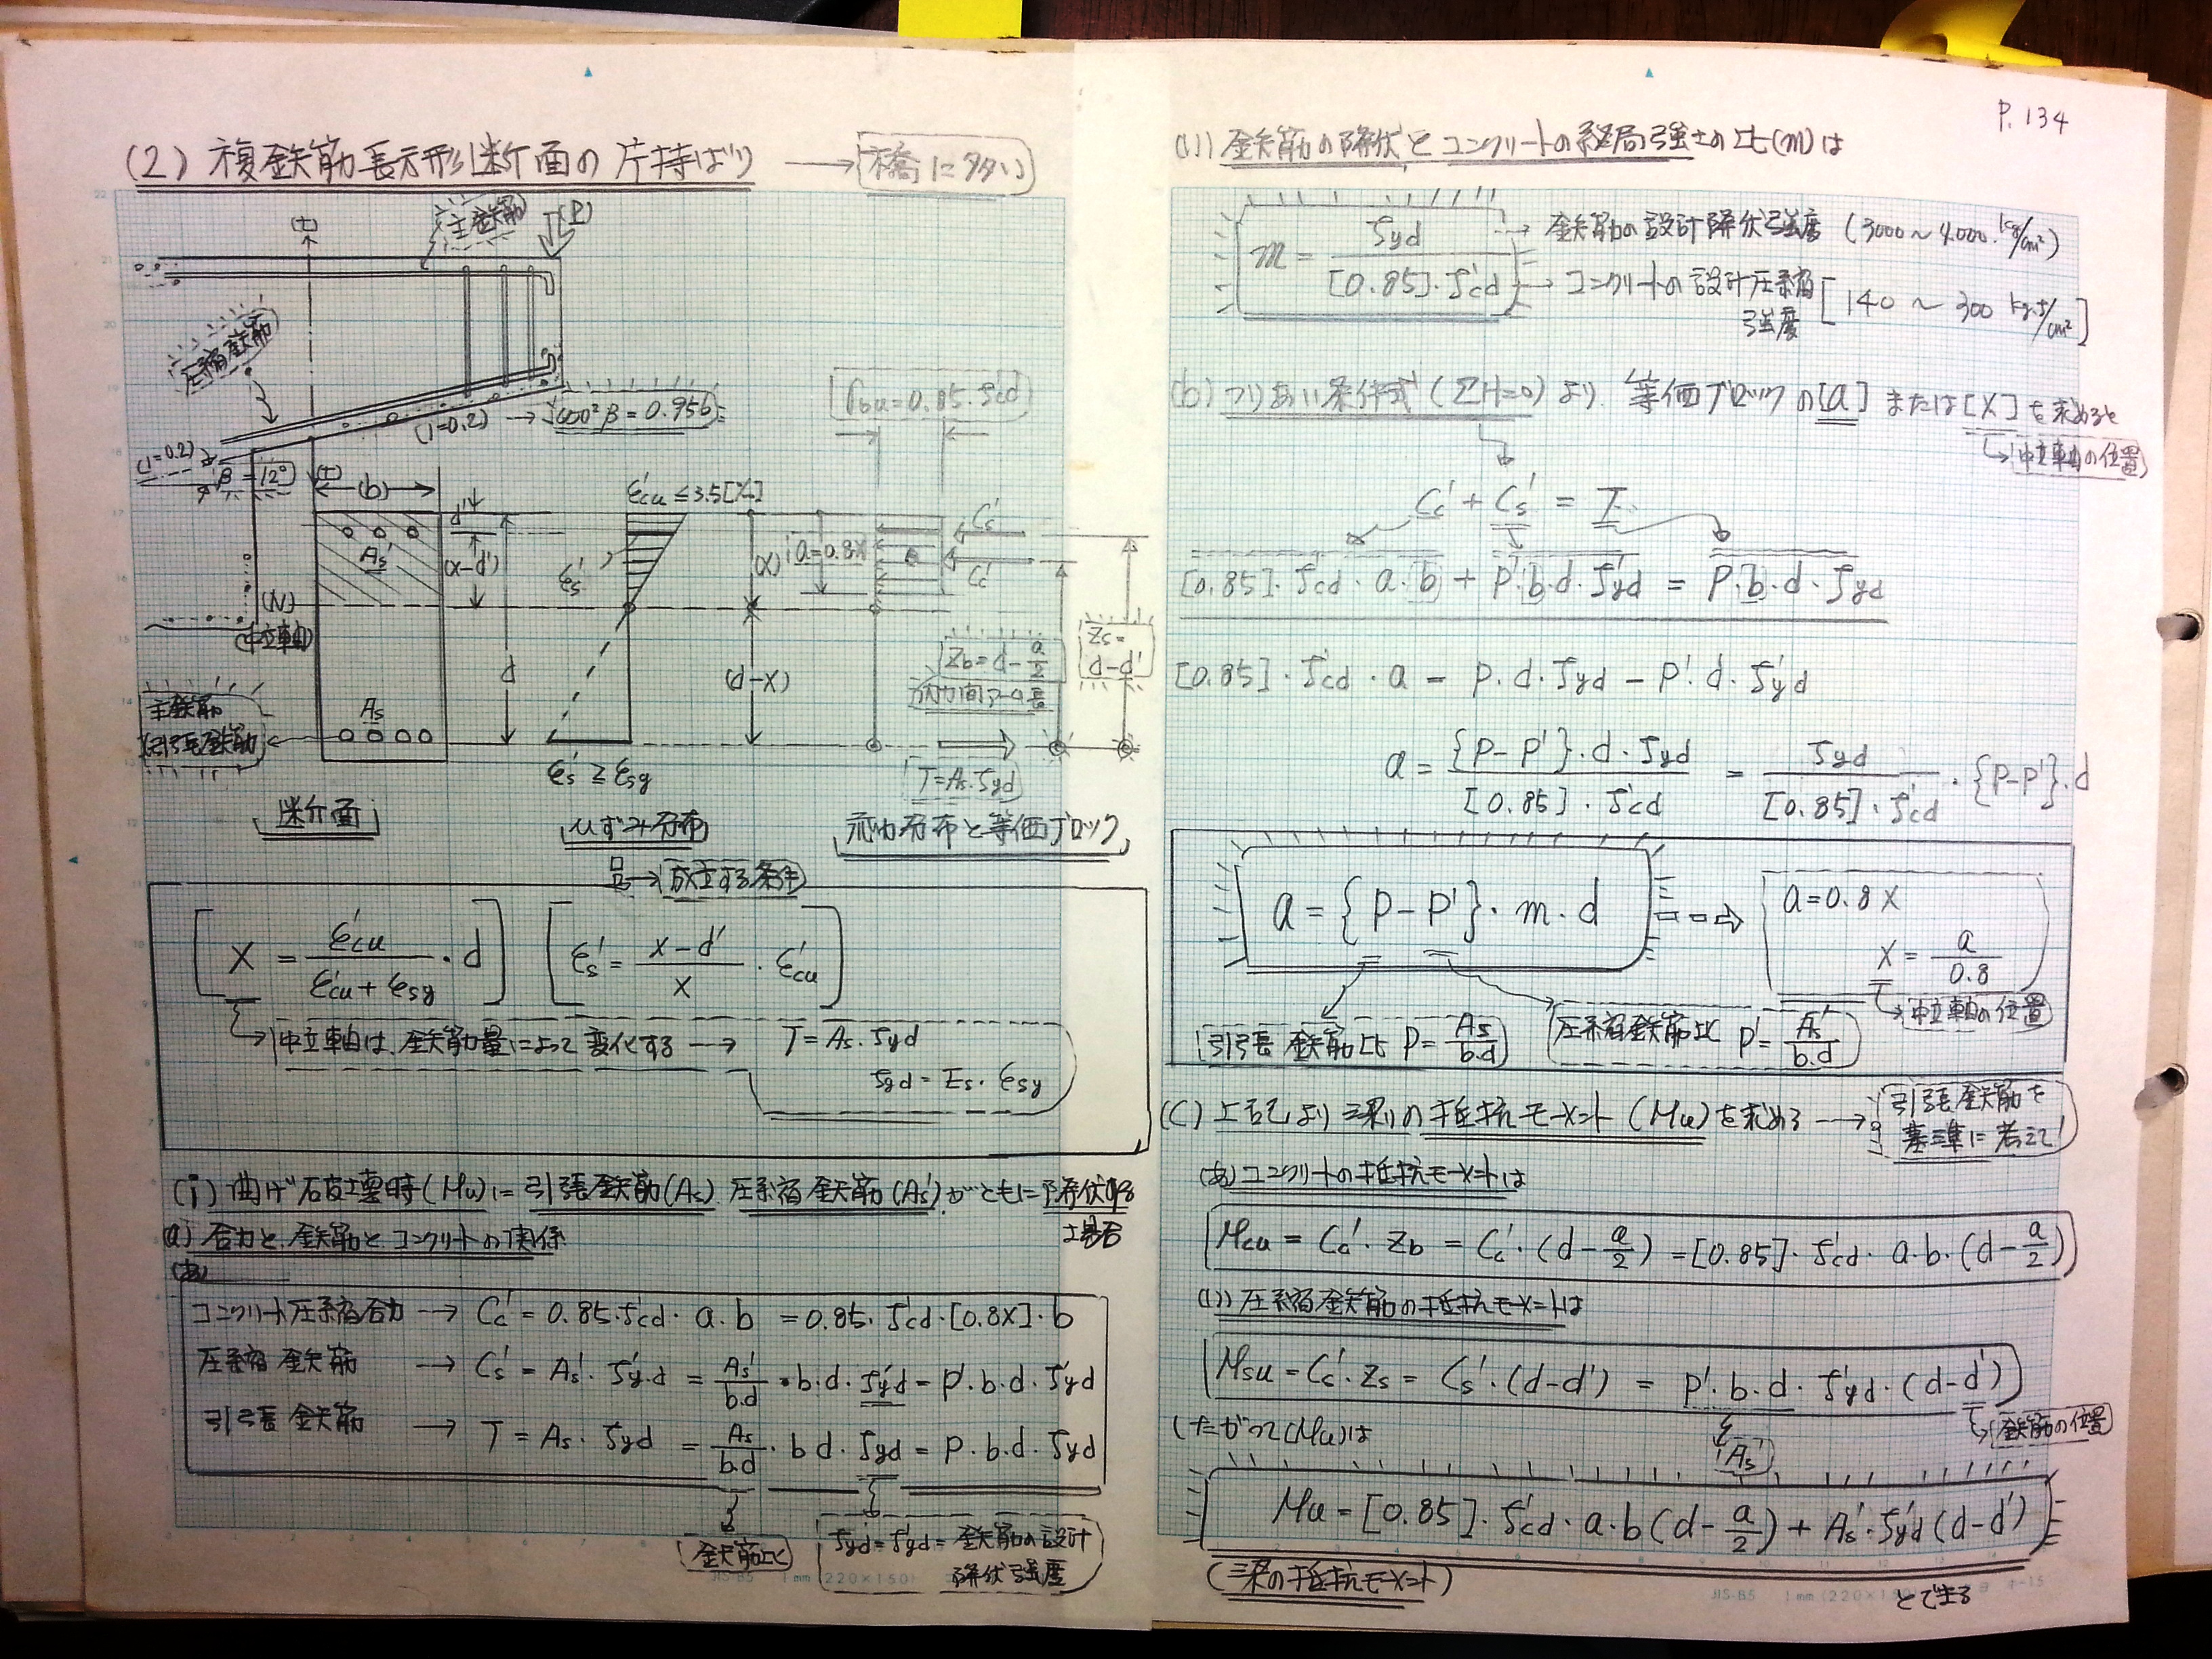 (2) 複鉄筋長方形断面の片持ばり → 橋に多い
(t)
主鉄筋
(P)
圧縮鉄筋
(1=0.2) → cos²β=0.956
(1=0.2)
β=12°
(t)
(b)
d'
(x-d')
As'
(N)
(中立軸)
d
As
主鉄筋
(引張鉄筋)
断面
ε'cu ≦ 3.5[‰]
εs'
(x)
(d-x)
εs' ≧ εsy
ひずみ分布
fbu=0.85・f'cd
a=0.8x
Cs'
Cc'
Zb=d-a/2
応力間アーム長
Zs=d-d'
T=As・fyd
応力分布と等価ブロック
成立する条件
[x = ε'cu/(ε'cu+εsy)・d] [εs' = (x-d')/x・ε'cu]
中立軸は、鉄筋量によって変化する → T=As・fyd
fyd=Es・εsy
(i) 曲げ破壊時(Mu)に引張鉄筋(As) 圧縮鉄筋(As')がともに降伏する場合
a) 合力と鉄筋とコンクリートの関係
(あ)
コンクリート圧縮合力 → Cc'=0.85・f'cd・a・b = 0.85・f'cd・[0.8x]・b
圧縮鉄筋 → Cs'=As'・f'yd = As'/b.d・b.d・f'yd = p'・b.d・f'yd
引張鉄筋 → T=As・fyd = As/b.d・b d・fyd = p・b.d・fyd
鉄筋比
fyd=f'yd=鉄筋の設計降伏強度
P.134
(い) 鉄筋の降伏とコンクリートの終局強さの比(m)は
m = fyd/[0.85]・f'cd
→ 鉄筋の設計降伏強度 (3000~4000 kg/cm²)
→ コンクリートの設計圧縮強度 [140 ~ 300 kgf/cm²]
(b) つりあい条件式 (ΣH=0) より、等価ブロックの[a] または[x]を求めると
中立軸の位置
Cc' + Cs' = T
[0.85]・f'cd・a・b + p'・b・d・f'yd = p・b・d・fyd
[0.85]・f'cd・a = p・d・fyd - p'・d・f'yd
a = {p-p'}・d・fyd/[0.85]・f'cd = fyd/[0.85]・f'cd・{p-p'}・d
a={p-p'}・m・d
a=0.8x
x = a/0.8
中立軸の位置
引張鉄筋比 p=As/b.d
圧縮鉄筋比 p'=As'/b.d
(c) 上記より梁の抵抗モーメント (Mu)を求める → 引張鉄筋を基準に考えて
(あ)コンクリートの抵抗モーメントは
Mcu = Cc'・Zb = Cc'・(d-a/2) = [0.85]・f'cd・a・b・(d-a/2)
(い) 圧縮鉄筋の抵抗モーメントは
Msu = Cs'・Zs = Cs'・(d-d') = p'・b・d・f'yd・(d-d')
As'
鉄筋の位置
したがって(Mu)は
Mu=[0.85]・f'cd・a・b(d-a/2) + As'・f'yd(d-d')
(梁の抵抗モーメント)
とできる